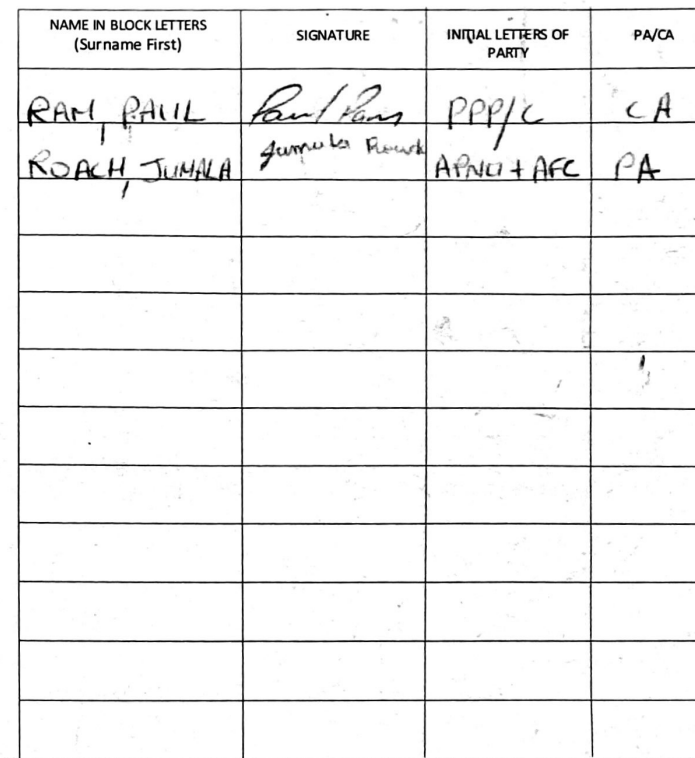 NAME IN BLOCK LETTERS (Surname First) SIGNATURE INITIAL LETTERS OF PARTY PA/CA
RAM, PAUL Paul Ram PPP/C CA
ROACH, JUMALA Jumala Roach APNU + AFC PA